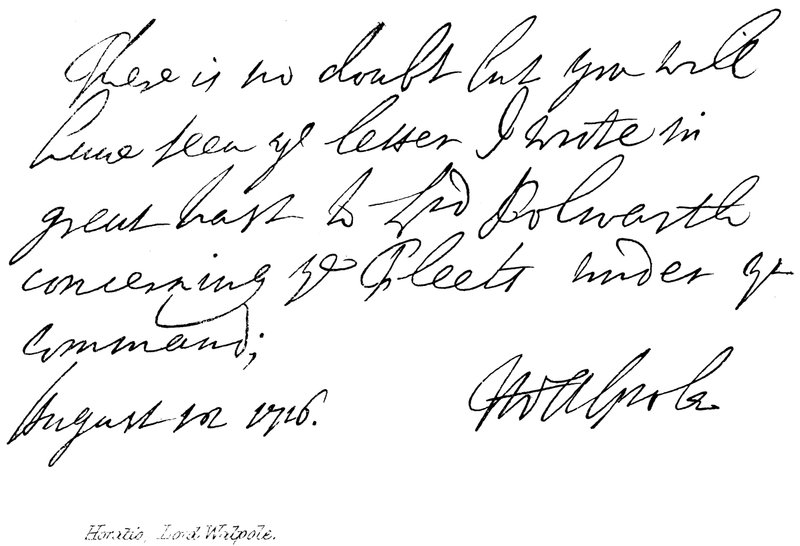 There is no doubt but you will
have seen ye letter I wrote in
great hast to Lrd Polwarth
concerning ye Fleets under yr
command;
August 1716.
HWalpole
Horatio, Lord Walpole.